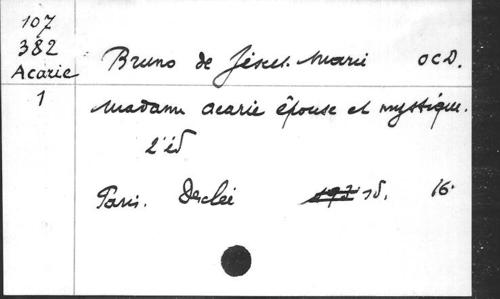 107
382
Acarie
1
Bruno de Jésus-Marie OCD.
Madame Acarie épouse et mystique.
2e éd
Paris. Desclée 16.